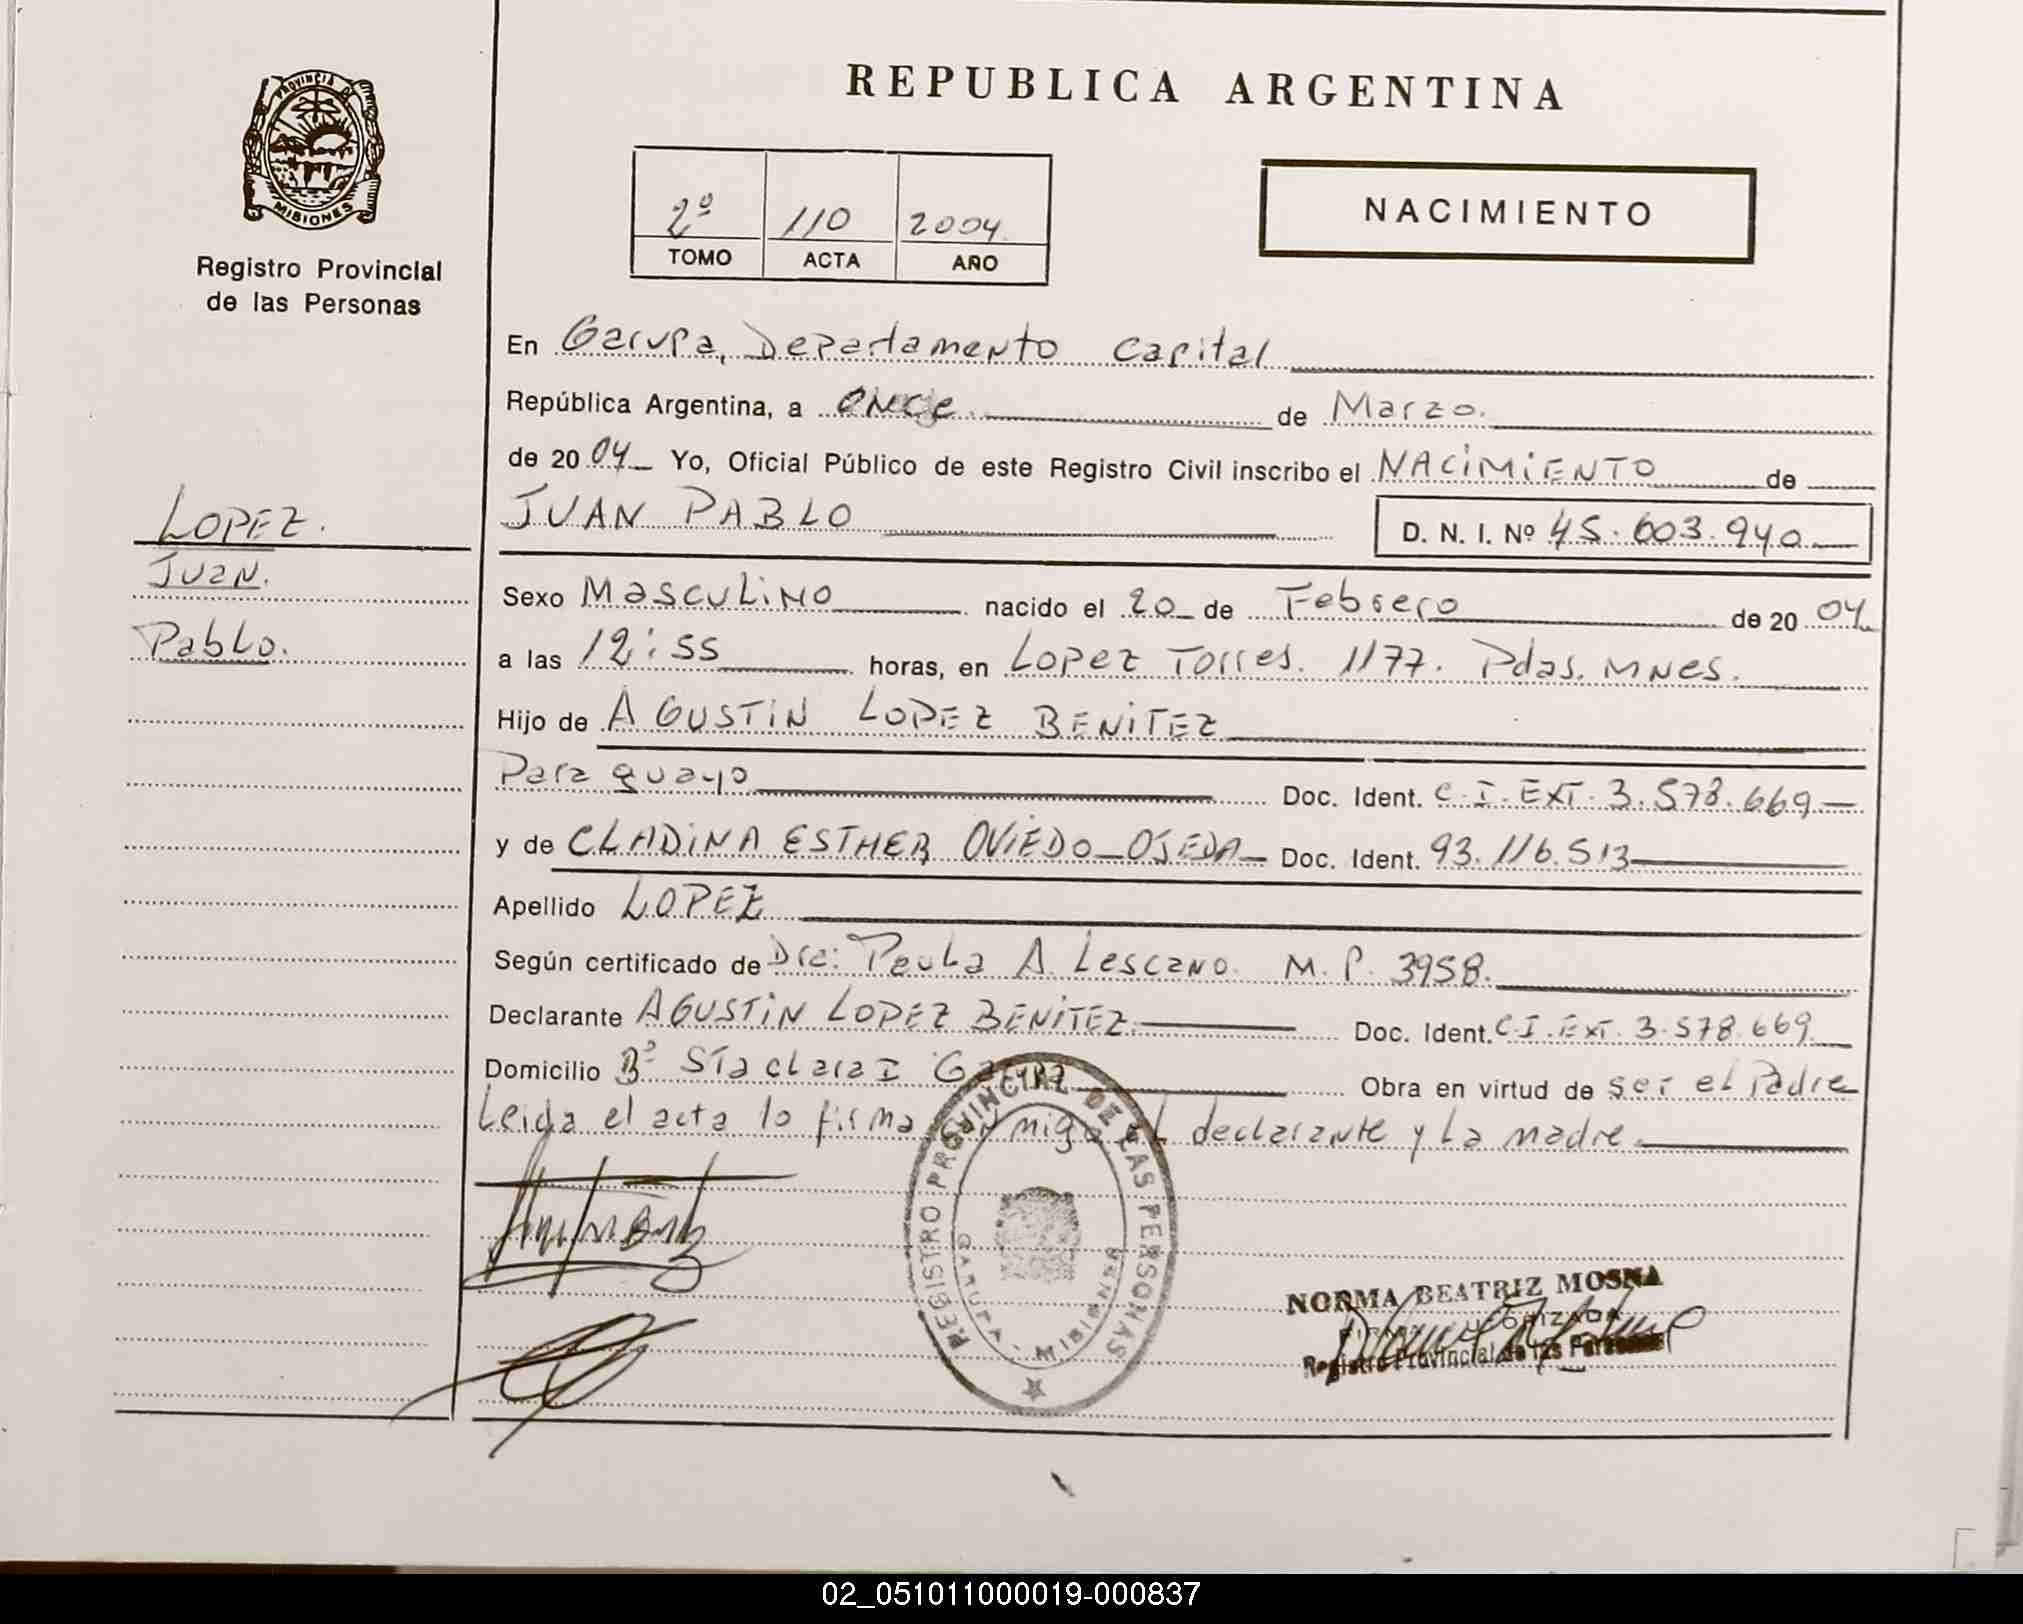 REPUBLICA ARGENTINA
PROVINCIA DE
MISIONES
Registro Provincial
de las Personas
2º 110 2004
TOMO ACTA AÑO
NACIMIENTO
En Garupa, Departamento Capital
República Argentina, a once de Marzo.
de 20 04 Yo, Oficial Público de este Registro Civil inscribo el NACIMIENTO de
JUAN PABLO D. N. I. Nº 45.603.940
LOPEZ.
Juan.
Pablo.
Sexo Masculino nacido el 20 de Febrero de 20 04
a las 12:55 horas, en Lopez Torres. 1177. Pdas. MNes.
Hijo de AGUSTIN LOPEZ BENITEZ
Paraguayo Doc. Ident. C.I. EXT. 3.578.669
y de CLADINA ESTHER OVIEDO OJEDA Doc. Ident. 93.116.513
Apellido LOPEZ
Según certificado de Dra: Paula A. Lescano. M.P. 3958.
Declarante AGUSTIN LOPEZ BENITEZ Doc. Ident. C.I. Ext. 3.578.669
Domicilio Bº Sta clara I Garupa Obra en virtud de ser el Padre
Leida el acta lo firma conmigo el declarante y la madre.
REGISTRO PROVINCIAL DE LAS PERSONAS
GARUPA - MISIONES
NORMA BEATRIZ MOSNA
FIRMA AUTORIZADA
Registro Provincial de las Personas
02_051011000019-000837